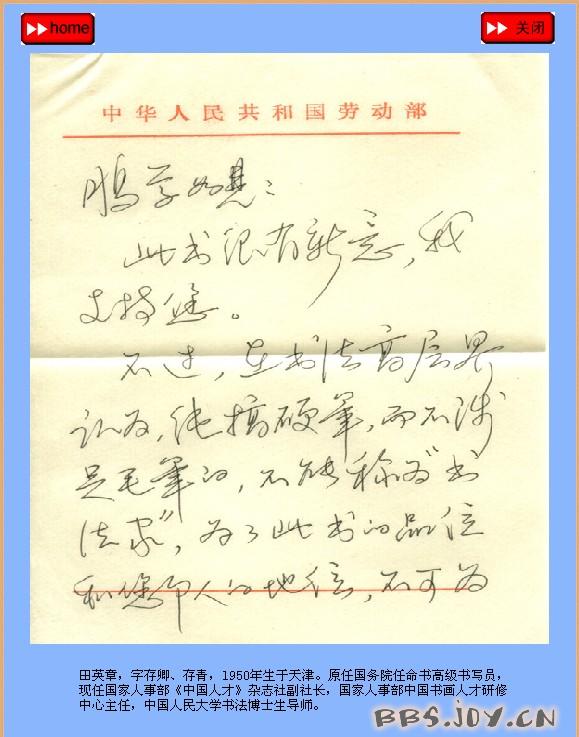 home
关闭
中华人民共和国劳动部
鹏举如见：
此书很有新意，我
支持您。
不过，在书法高层界
认为，纯搞硬筆，而不涉
足毛筆的，不能称为“书
法家”，为了此书的品位
和您本人的地位，不可为
田英章，字存卿、存青，1950年生于天津。原任国务院任命书高级书写员，
现任国家人事部《中国人才》杂志社副社长，国家人事部中国书画人才研修
中心主任，中国人民大学书法博士生导师。
BBS.JOY.CN